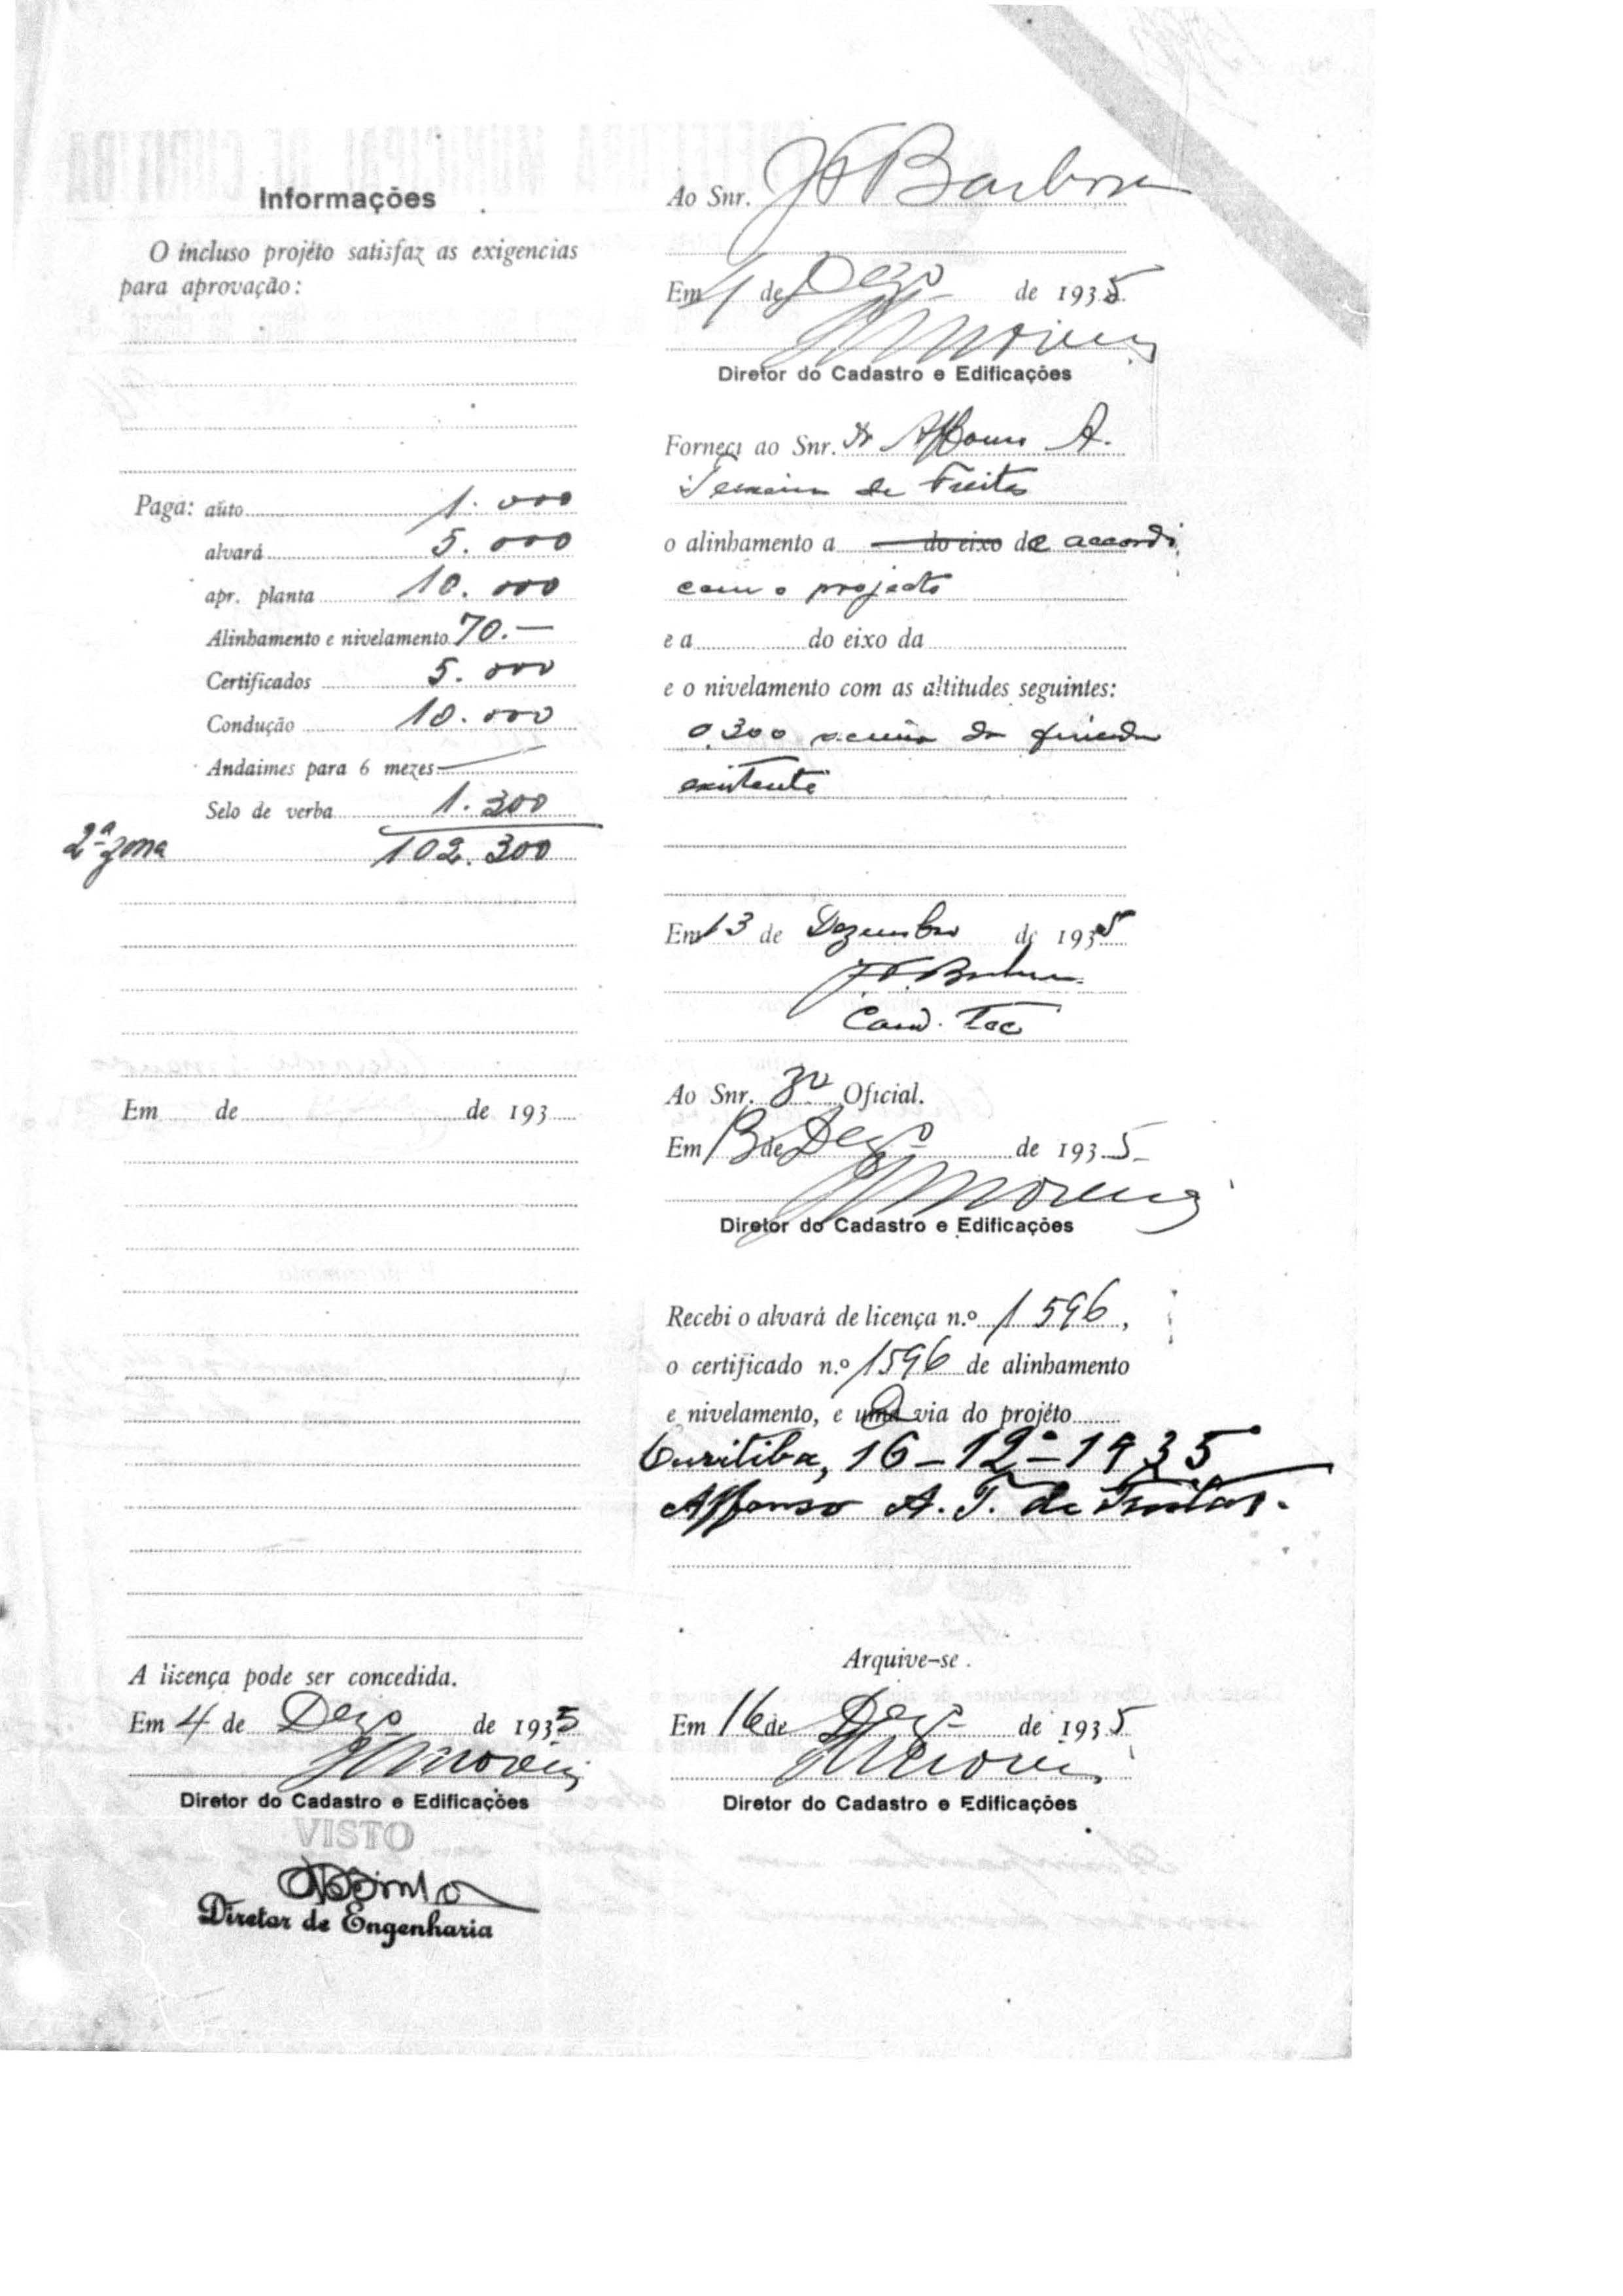 Informações
O incluso projéto satisfaz as exigencias
para aprovação:
Paga: auto 1.000
alvará 5.000
apr. planta 10.000
Alinhamento e nivelamento 70.—
Certificados 5.000
Condução 10.000
Andaimes para 6 mezes —
Selo de verba 1.300
2ª zona 102.300
Em de de 193
A licença pode ser concedida.
Em 4 de Dezo de 1935
Diretor do Cadastro e Edificações
VISTO
Diretor de Engenharia
Ao Snr. J F Barbosa
Em 4 de Dezo de 1935
Diretor do Cadastro e Edificações
Forneci ao Snr. Dr Affonso A.
Teixeira de Freitas
o alinhamento a do eixo de accordo
com o projecto
e a do eixo da
e o nivelamento com as altitudes seguintes:
0.300 acima da
existente
Em 13 de Dezembro de 1935
J.F. Barbosa
Cond. Tec
Ao Snr. 3º Oficial.
Em 13 de Dezo de 1935
Diretor do Cadastro e Edificações
Recebi o alvará de licença n.º 1596,
o certificado n.º 1596 de alinhamento
e nivelamento, e uma 2 via do projéto
Curitiba, 16-12-1935
Affonso A. T. de Freitas.
Arquive-se.
Em 16 de Dezo de 1935
Diretor do Cadastro e Edificações